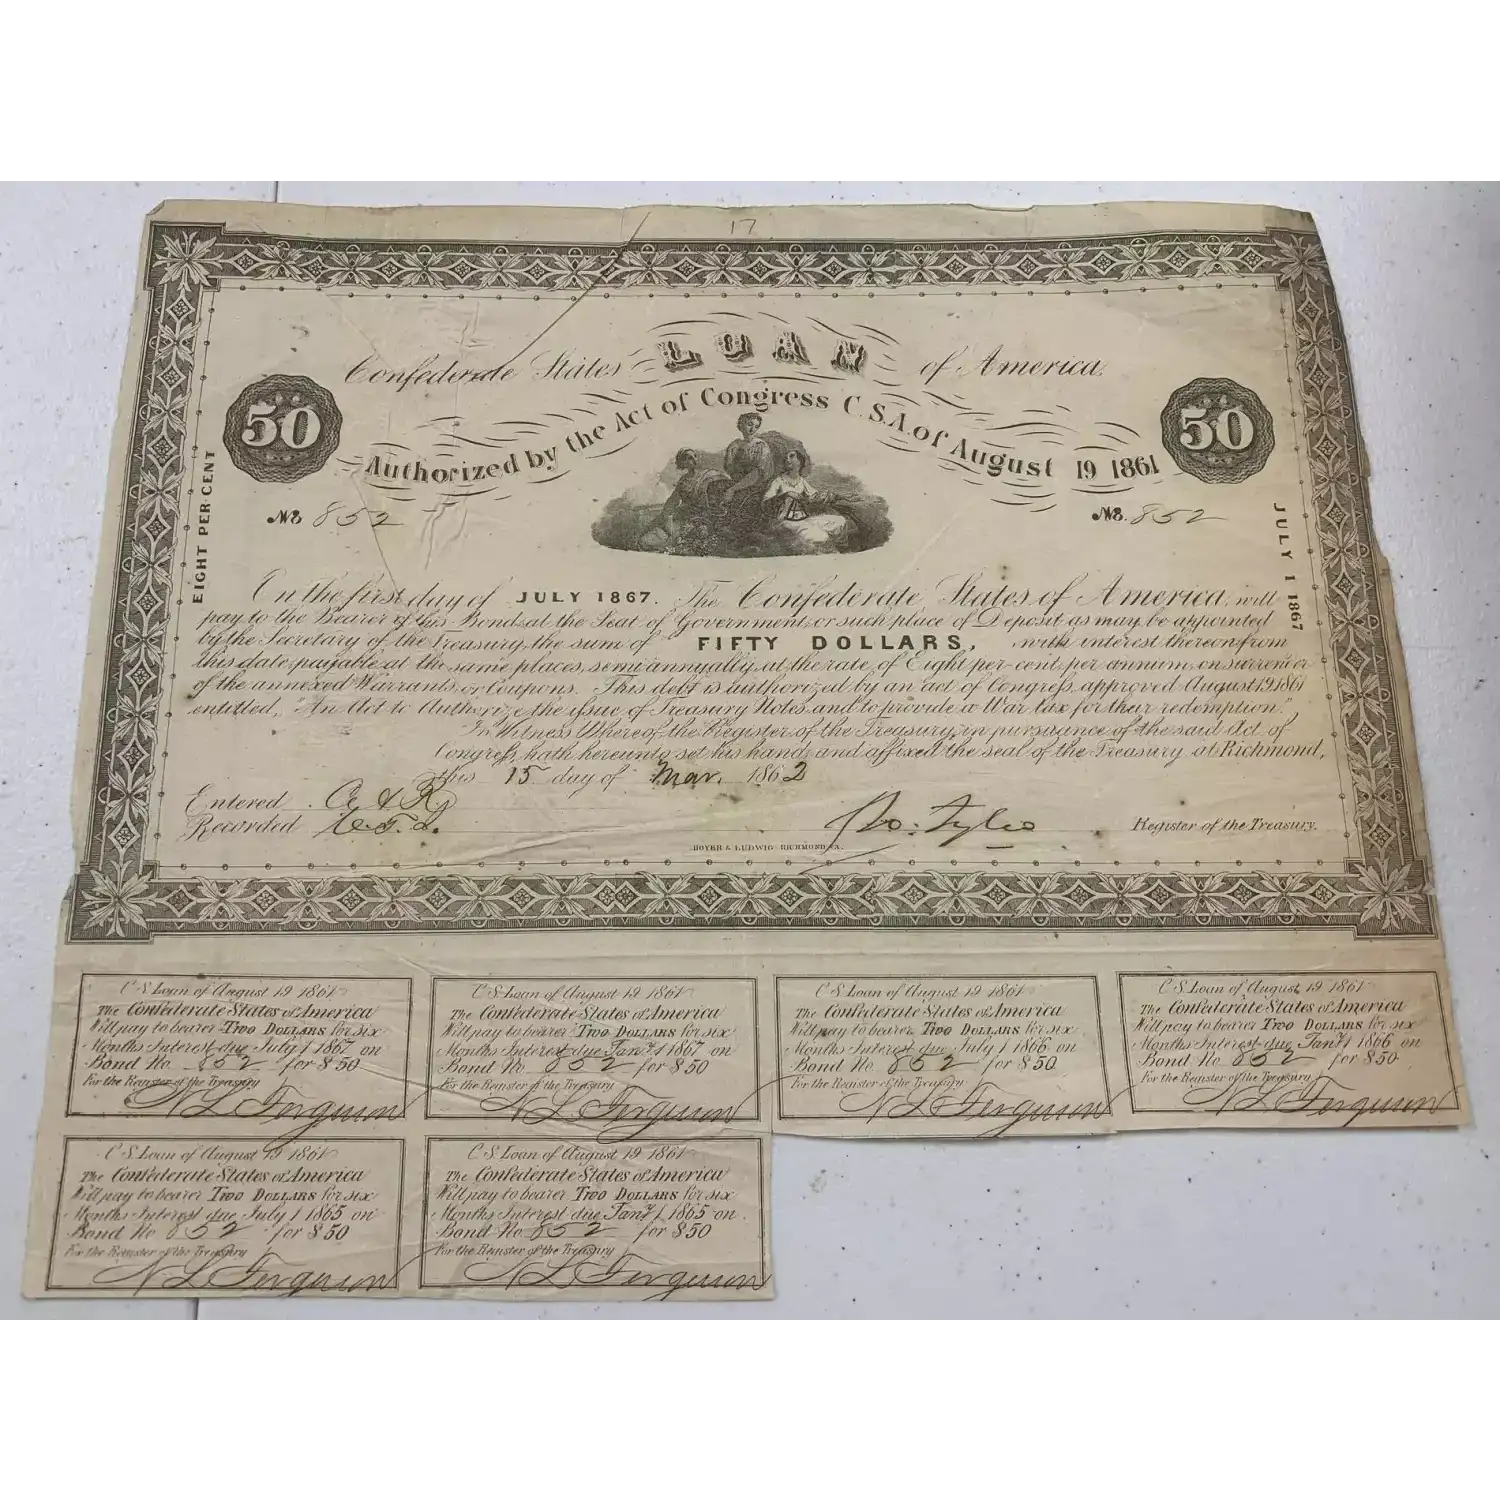 17
Confederate States LOAN of America.
Authorized by the Act of Congress C.S.A. of August 19 1861
50
50
EIGHT PER CENT
JULY 1 1867
No 852
No. 852
On the first day of JULY 1867. The Confederate States of America, will
pay to the Bearer of this Bond, at the Seat of Government, or such place of Deposit as may be appointed
by the Secretary of the Treasury, the sum of FIFTY DOLLARS, with interest thereon from
this date payable at the same places, semi annually, at the rate of Eight per cent, per annum, on surrender
of the annexed Warrants, or Coupons. This debt is authorized by an act of Congress, approved August 19, 1861
entitled, "An Act to Authorize the issue of Treasury Notes, and to provide a War tax for their redemption."
In Witness Whereof the Register of the Treasury, in pursuance of the said Act of
Congress, hath hereunto set his hand, and affixed the seal of the Treasury, at Richmond,
this 15 day of Mar. 1862
Entered
Recorded
Ro: Tyler Register of the Treasury.
HOYER & LUDWIG RICHMOND, VA.
C S Loan of August 19 1861
The Confederate States of America
Will pay to bearer Two Dollars for six
Months Interest due July 1 1867 on
Bond No 852 for $50
For the Register of the Treasury
N L Ferguson
C S Loan of August 19 1861
The Confederate States of America
Will pay to bearer Two Dollars for six
Months Interest due Jany 1 1867 on
Bond No 852 for $50
For the Register of the Treasury
N L Ferguson
C S Loan of August 19 1861
The Confederate States of America
Will pay to bearer Two Dollars for six
Months Interest due July 1 1866 on
Bond No 852 for $50
For the Register of the Treasury
N L Ferguson
C S Loan of August 19 1861
The Confederate States of America
Will pay to bearer Two Dollars for six
Months Interest due Jany 1 1866 on
Bond No 852 for $50
For the Register of the Treasury
N L Ferguson
C S Loan of August 19 1861
The Confederate States of America
Will pay to bearer Two Dollars for six
Months Interest due July 1 1865 on
Bond No 852 for $50
For the Register of the Treasury
N L Ferguson
C S Loan of August 19 1861
The Confederate States of America
Will pay to bearer Two Dollars for six
Months Interest due Jany 1 1865 on
Bond No 852 for $50
For the Register of the Treasury
N L Ferguson